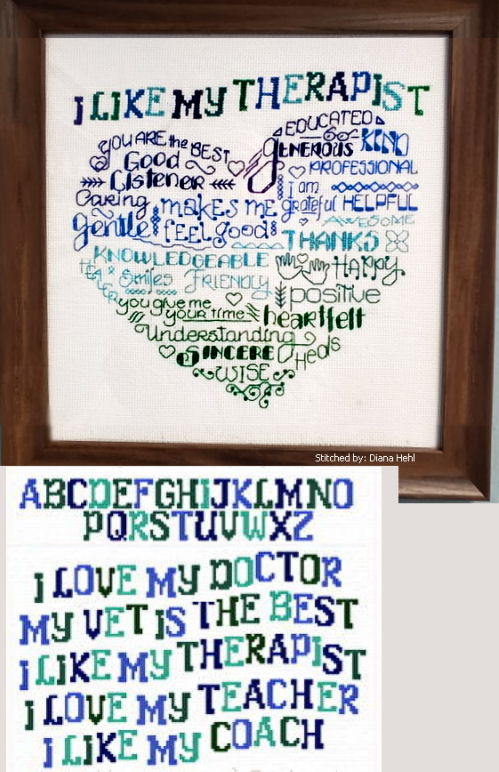 I LIKE MY THERAPIST
EDUCATED
YOU ARE the BEST
GENEROUS KIND
Good
PROFESSIONAL
Listener
i am
Caring makes me grateful HELPFUL
Gentle feel good
AWESOME
THANKS
KNOWLEDGEABLE
HAPPY
Smiles FRIENDLY
positive
you give me
your time heartfelt
Understanding
SINCERE Heals
WISE
Stitched by: Diana Hehl
ABCDEFGHIJKLMNO
PQRSTUVWXZ
I LOVE MY DOCTOR
MY VET IS THE BEST
I LIKE MY THERAPIST
I LOVE MY TEACHER
I LIKE MY COACH